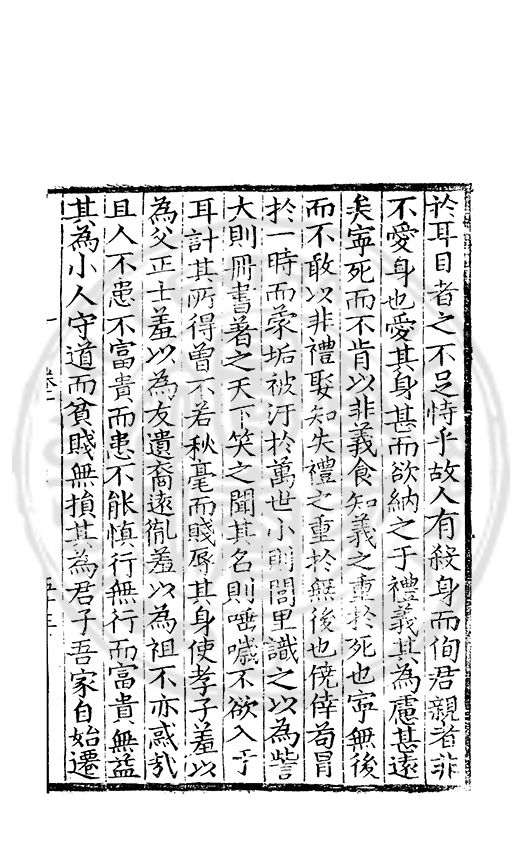 於耳目者之不足恃乎故人有殺身而徇君親者非
不愛身也愛其身甚而欲納之于禮義其為慮甚遠
矣寧死而不肯以非義食知義之重於死也寧無後
而不敢以非禮娶知失禮之重於無後也僥倖苟冒
於一時而蒙垢被汙於萬世小則閭里識之以為訾
大則冊書著之天下笑之聞其名則唾噦不欲入于
耳計其所得曾不若秋毫而賤辱其身使孝子羞以
為父正士羞以為友遺裔遠胤羞以為祖不亦惑哉
且人不患不富貴而患不能慎行無行而富貴無益
其為小人守道而貧賤無損其為君子吾家自始遷